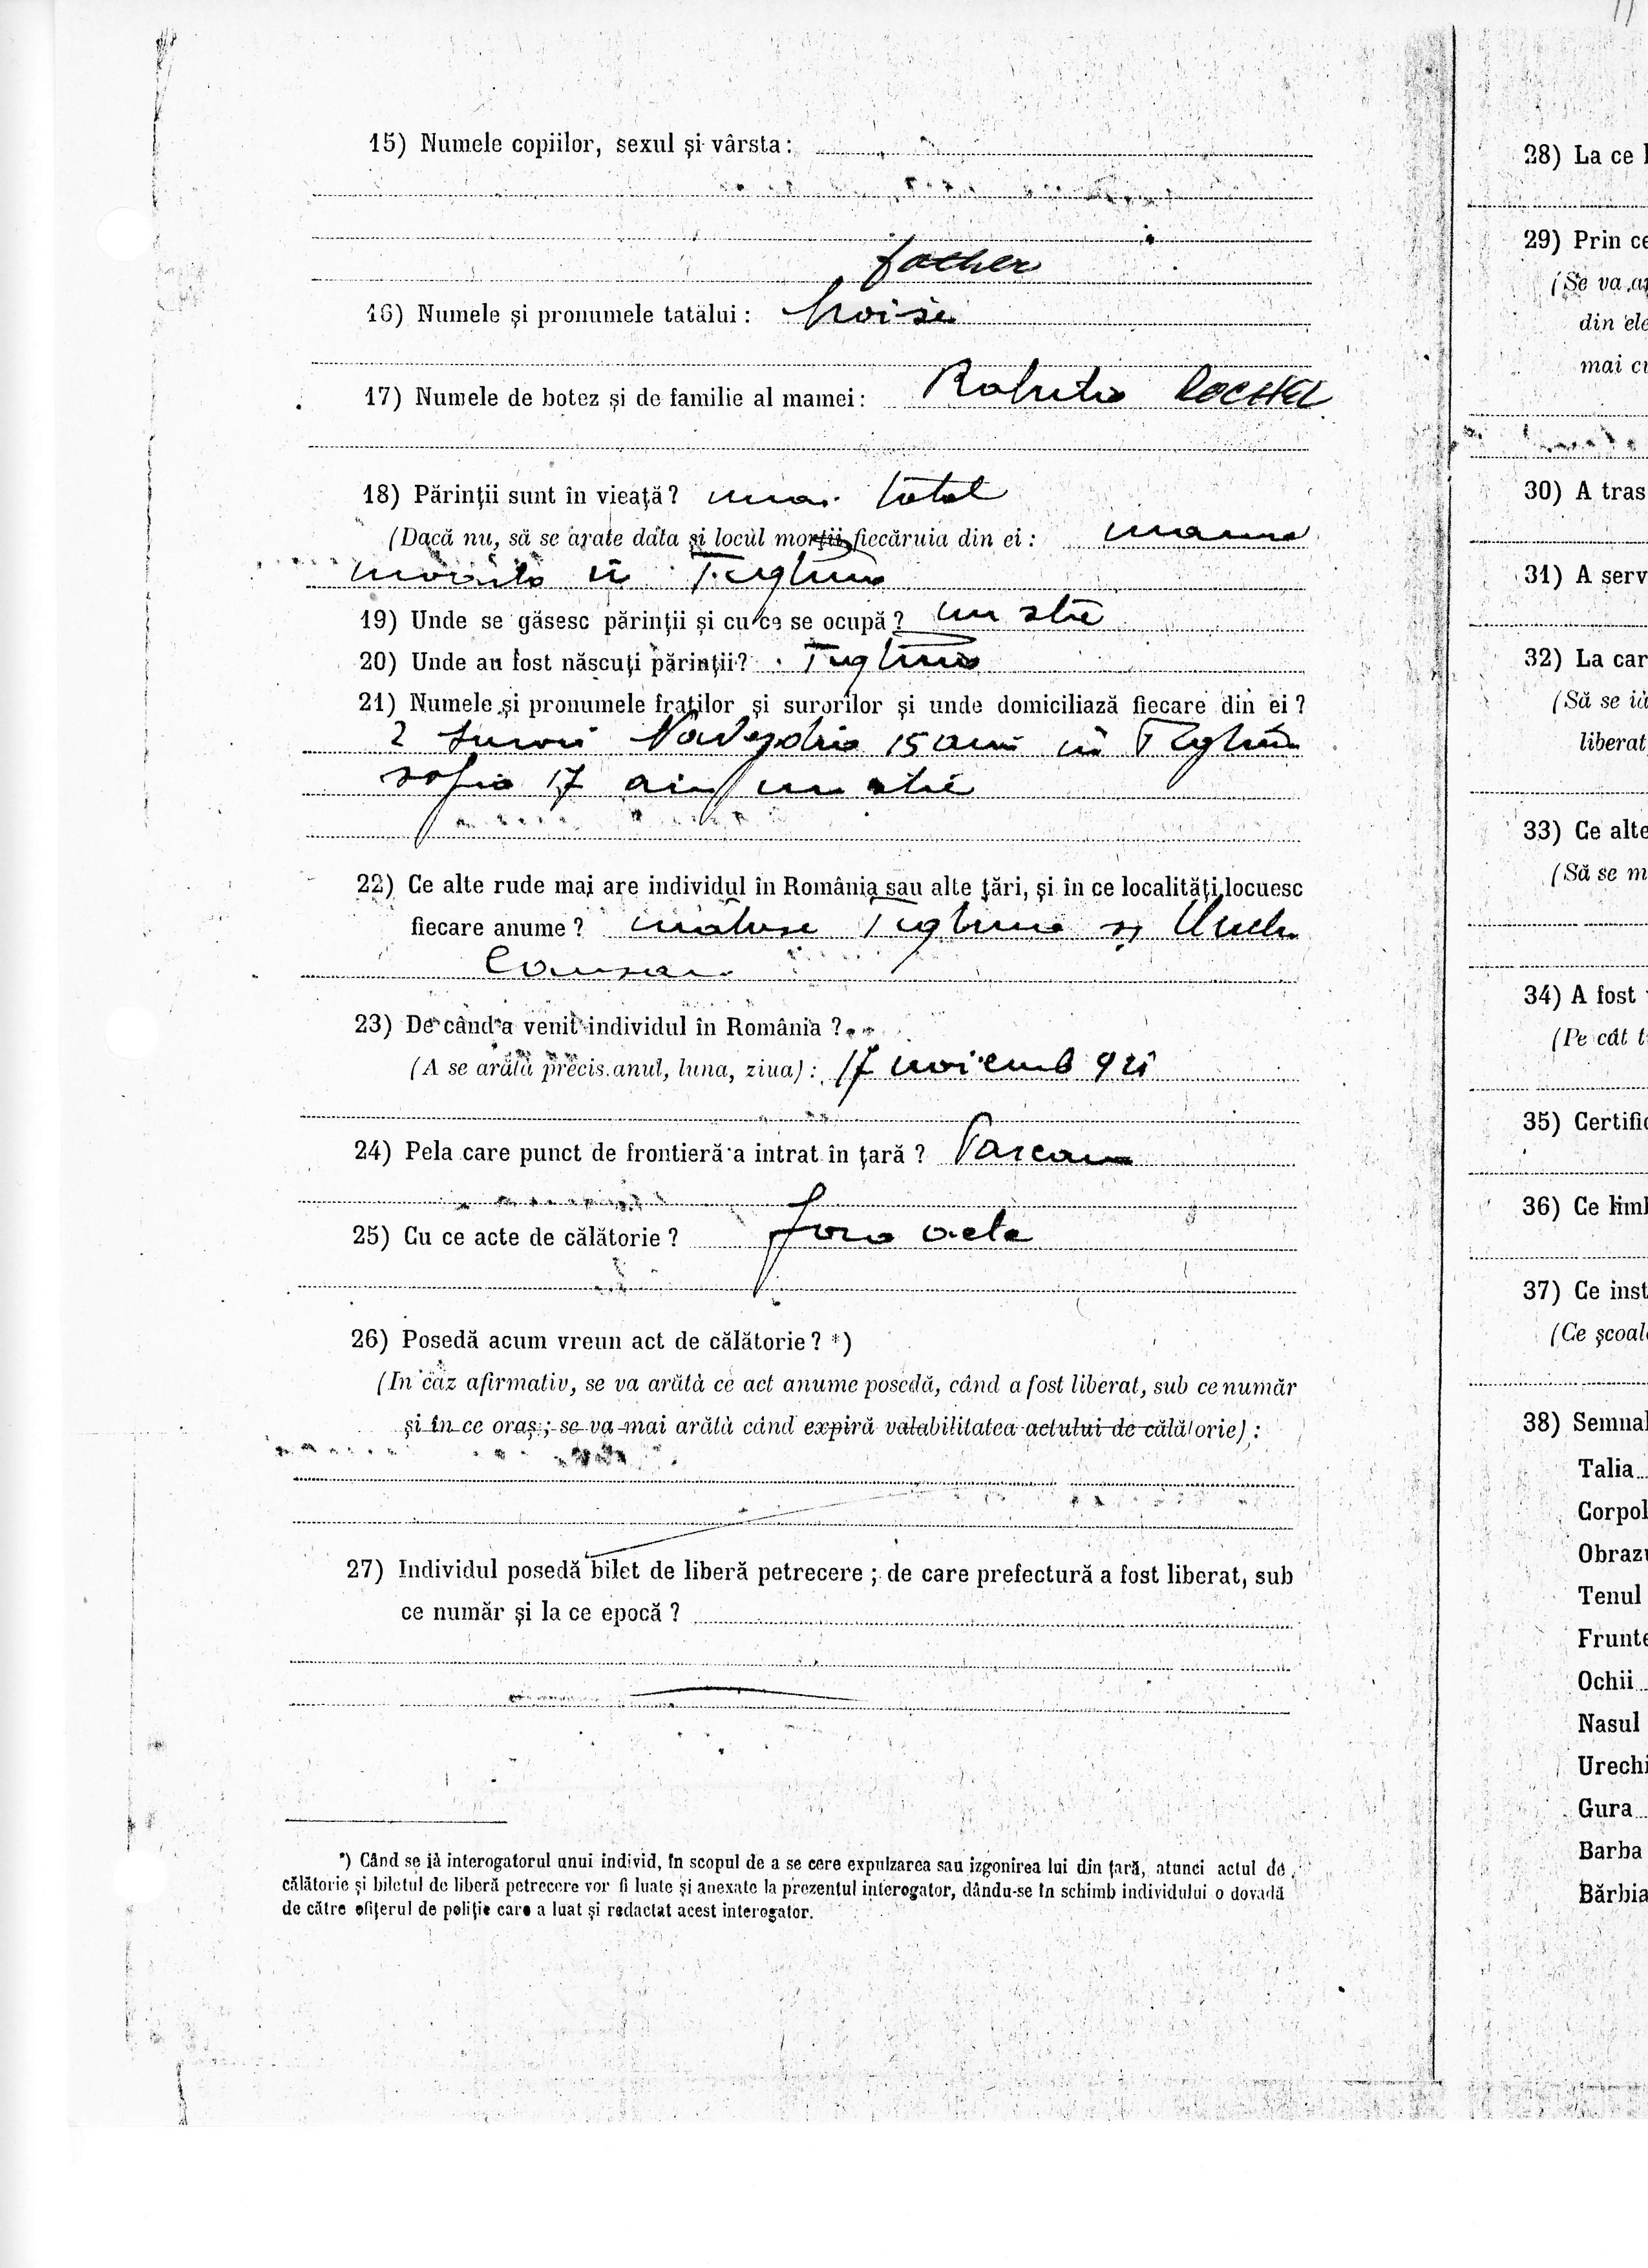 15) Numele copiilor, sexul și vârsta:
father
16) Numele și pronumele tatălui: Moise
17) Numele de botez și de familie al mamei: ROCHEL
18) Părinții sunt în vieață? numai tatal
(Dacă nu, să se arate data și locul morții fiecăruia din ei: mama
moarta in Tighina
19) Unde se găsesc părinții și cu ce se ocupă? nu stie
20) Unde au fost născuți părinții? Tighina
21) Numele și pronumele fraților și surorilor și unde domiciliază fiecare din ei?
2 surori 15 ani in Tighina
sofia 17 ani nu stie
22) Ce alte rude mai are individul în România sau alte țări, și în ce localități locuesc
fiecare anume? matusa Tighina si Unchi
Causani
23) De când a venit individul în România?
(A se arătà precis anul, luna, ziua): 17 noiemb 921
24) Pela care punct de frontieră a intrat în țară? Parcani
25) Cu ce acte de călătorie? fara acte
26) Posedă acum vreun act de călătorie? *)
(In caz afirmativ, se va arătà ce act anume posedă, când a fost liberat, sub ce număr
și în ce oraș; se va mai arătà când expiră valabilitatea actului de călătorie):
27) Individul posedă bilet de liberă petrecere; de care prefectură a fost liberat, sub
ce număr și la ce epocă?
*) Când se ià interogatorul unui individ, în scopul de a se cere expulzarea sau izgonirea lui din țară, atunci actul de
călătorie și biletul de liberă petrecere vor fi luate și anexate la prezentul interogator, dându-se în schimb individului o dovadă
de către ofițerul de poliție care a luat și redactat acest interogator.
28) La ce
29) Prin ce
(Se va
din
mai
30) A tras
31) A serv
32) La car
(Să se
liberat
33) Ce alte
(Să se m
34) A fost
(Pe cât
35) Certific
36) Ce limb
37) Ce inst
(Ce școal
38) Semnal
Talia
Corpol
Obrazu
Tenul
Frunte
Ochii
Nasul
Urechi
Gura
Barba
Bărbia